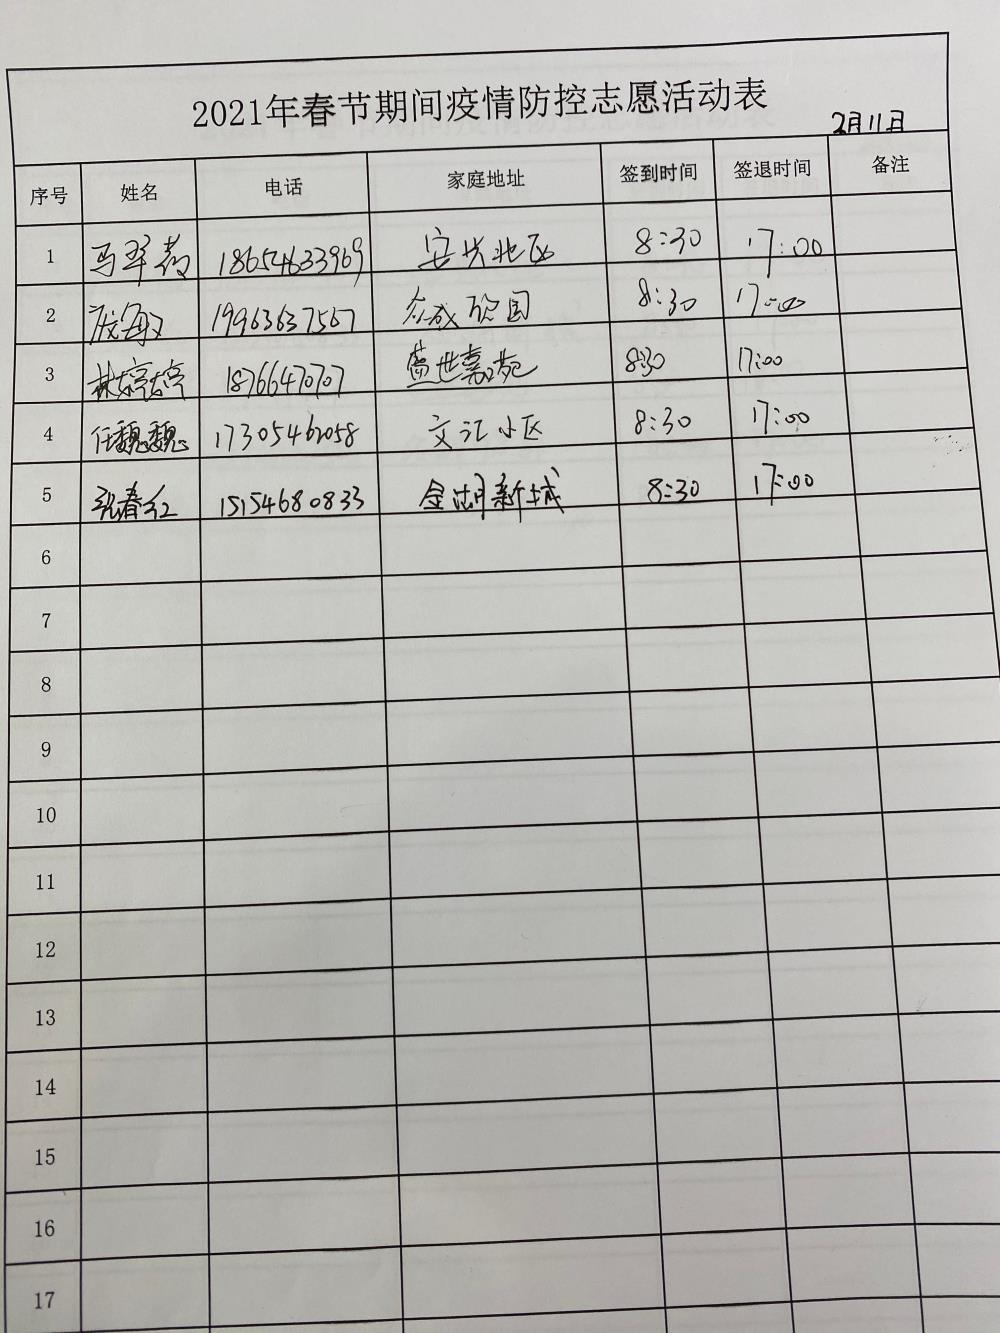 2021年春节期间疫情防控志愿活动表
2月11日
序号 姓名 电话 家庭地址 签到时间 签退时间 备注
1 马翠 18654633969 安兴北区 8:30 17:00
2 19963637567 众成 8:30 17:00
3 林婷婷 18766470707 蓝世嘉苑 8:30 17:00
4 任魏魏 17305462058 文汇小区 8:30 17:00
5 张春红 15154680833 金湖新城 8:30 17:00
6
7
8
9
10
11
12
13
14
15
16
17